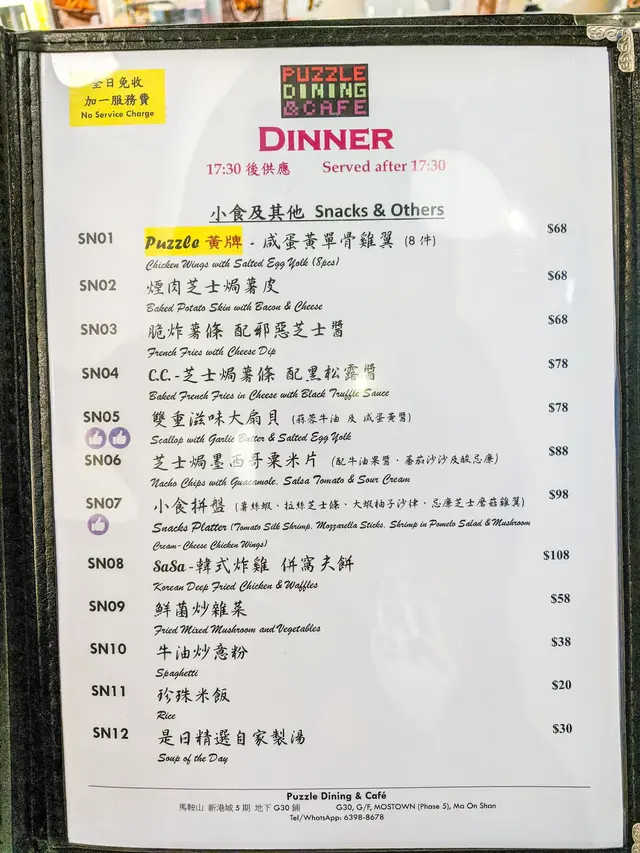 全日免收
加一服務費
No Service Charge
PUZZLE
DINING
&CAFE
DINNER
17:30 後供應 Served after 17:30
小食及其他 Snacks & Others
SN01 Puzzle 黃牌 - 咸蛋黃單骨雞翼 (8 件) $68
Chicken Wings with Salted Egg Yolk (8pcs)
SN02 煙肉芝士焗薯皮 $68
Baked Potato Skin with Bacon & Cheese
SN03 脆炸薯條 配邪惡芝士醬 $68
French Fries with Cheese Dip
SN04 C.C.-芝士焗薯條 配黑松露醬 $78
Baked French Fries in Cheese with Black Truffle Sauce
SN05 雙重滋味大扇貝 (蒜蓉牛油 及 咸蛋黃醬) $78
Scallop with Garlic Butter & Salted Egg Yolk
SN06 芝士焗墨西哥粟米片 (配牛油果醬、蕃茄沙沙及酸忌廉) $88
Nacho Chips with Guacamole, Salsa Tomato & Sour Cream
SN07 小食拼盤 (薯絲蝦、拉絲芝士條、大蝦柚子沙律、忌廉芝士蘑菇雞翼) $98
Snacks Platter (Tomato Silk Shrimp, Mozzarella Sticks, Shrimp in Pomelo Salad & Mushroom
Cream-Cheese Chicken Wings)
SN08 SaSa-韓式炸雞 併窩夫餅 $108
Korean Deep Fried Chicken & Waffles
SN09 鮮菌炒雜菜 $58
Fried Mixed Mushroom and Vegetables
SN10 牛油炒意粉 $38
Spaghetti
SN11 珍珠米飯 $20
Rice
SN12 是日精選自家製湯 $30
Soup of the Day
Puzzle Dining & Café
馬鞍山 新港城 5 期 地下 G30 舖 G30, G/F, MOSTOWN (Phase 5), Ma On Shan
Tel/WhatsApp: 6398-8678